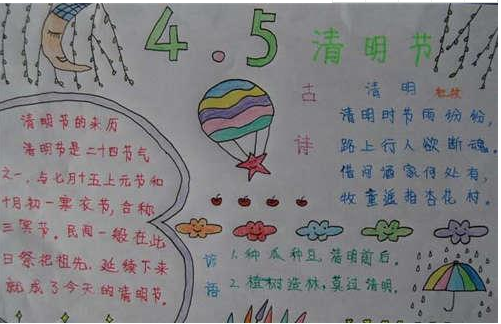 4.5 清明节
清明节的来历
清明节是二十四节气
之一，与七月十五上元节和
十月初一寒衣节，合称
三冥节。民间一般在此
日祭祀祖先，延续下来
就成了今天的清明节。
古诗
清明 杜牧
清明时节雨纷纷，
路上行人欲断魂。
借问酒家何处有，
牧童遥指杏花村。
谚语
1.种瓜种豆，清明前后。
2.植树造林，莫过清明。